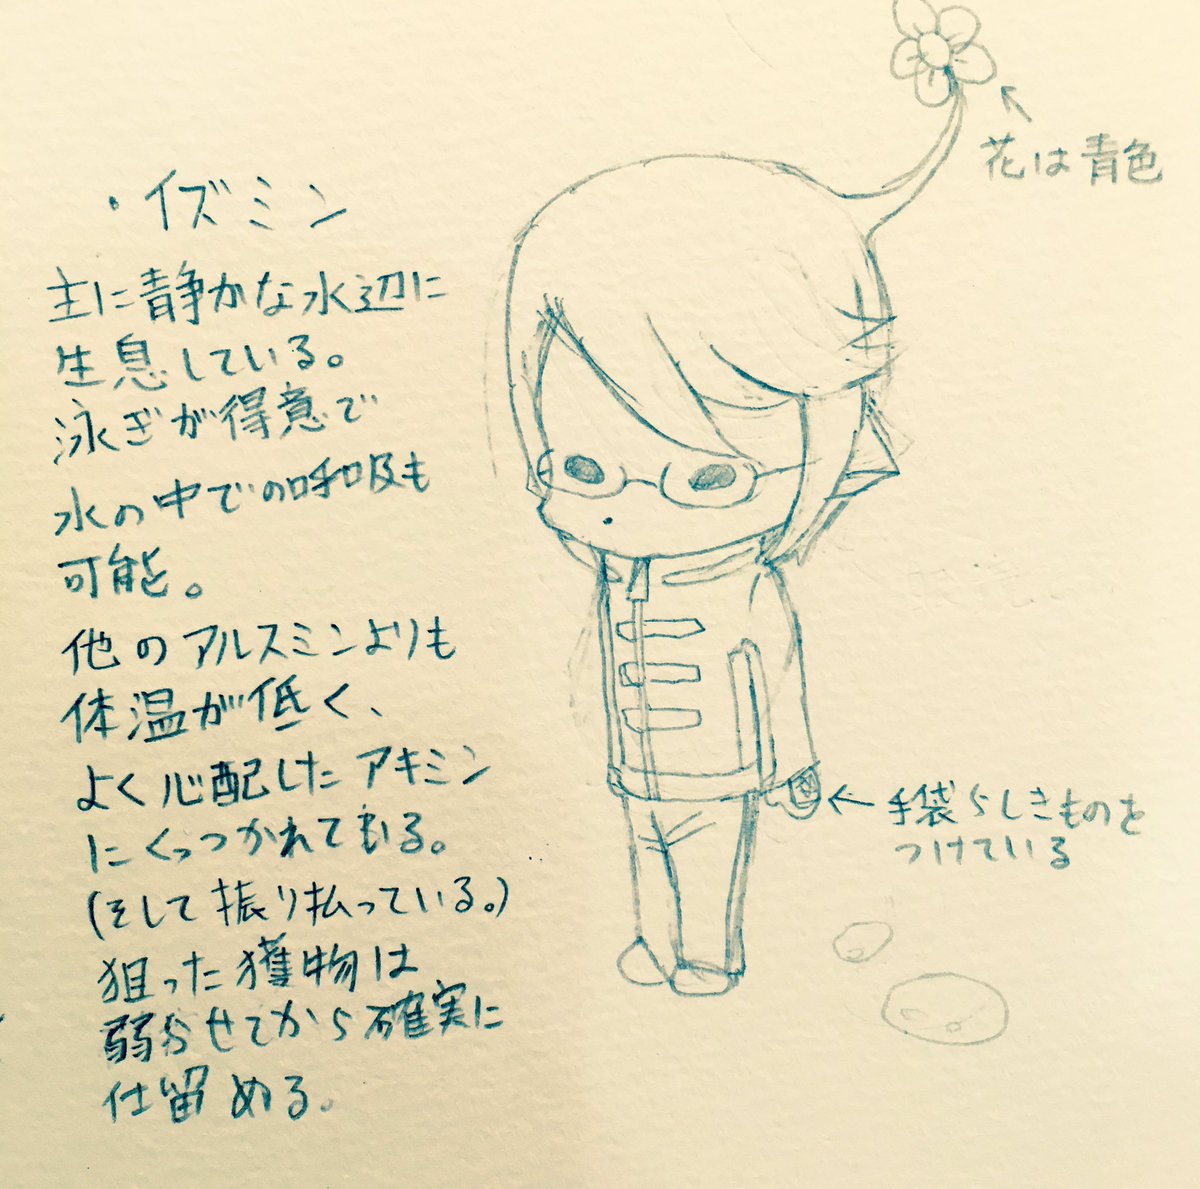 ・イズミン
主に静かな水辺に
生息している。
泳ぎが得意で
水の中での呼吸も
可能。
他のアルスミンよりも
体温が低く、
よく心配したアキミン
にくっつかれてもいる。
(そして振り払っている。)
狙った獲物は
弱らせてから確実に
仕留める。
花は青色
手袋らしきものを
つけている